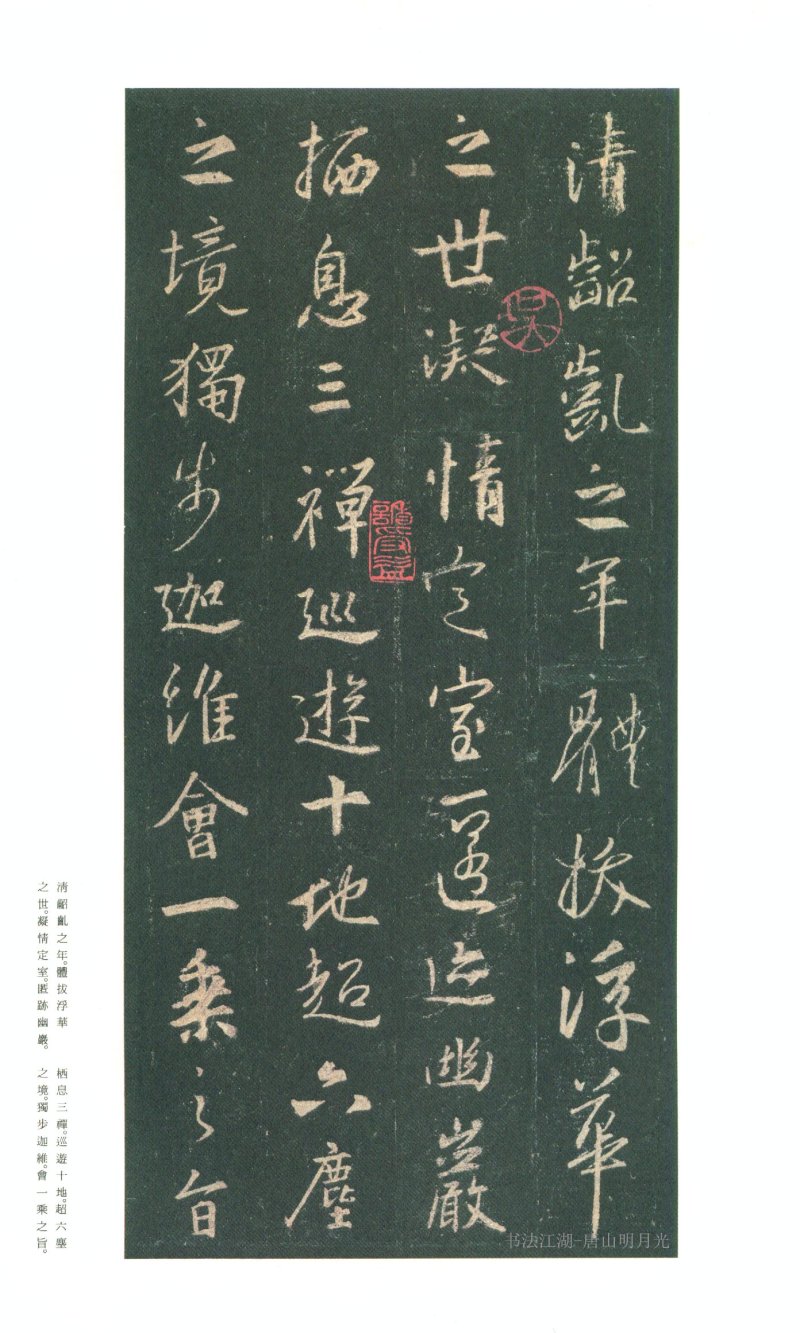 清齠齔之年體拔浮華
之世凝情定室匿迹幽巖
栖息三禪巡遊十地超六塵
之境獨步迦維會一乘之旨
清齠齔之年。體拔浮華
之世。凝情定室。匿跡幽巖。
栖息三禪。巡遊十地。超六塵
之境。獨步迦維。會一乘之旨。
书法江湖-唐山明月光